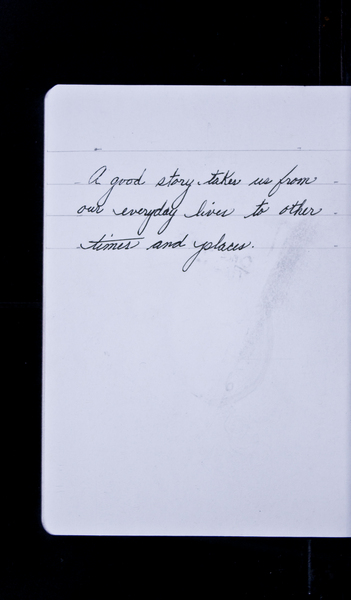 A good story takes us from
our everyday lives to other
times and places.